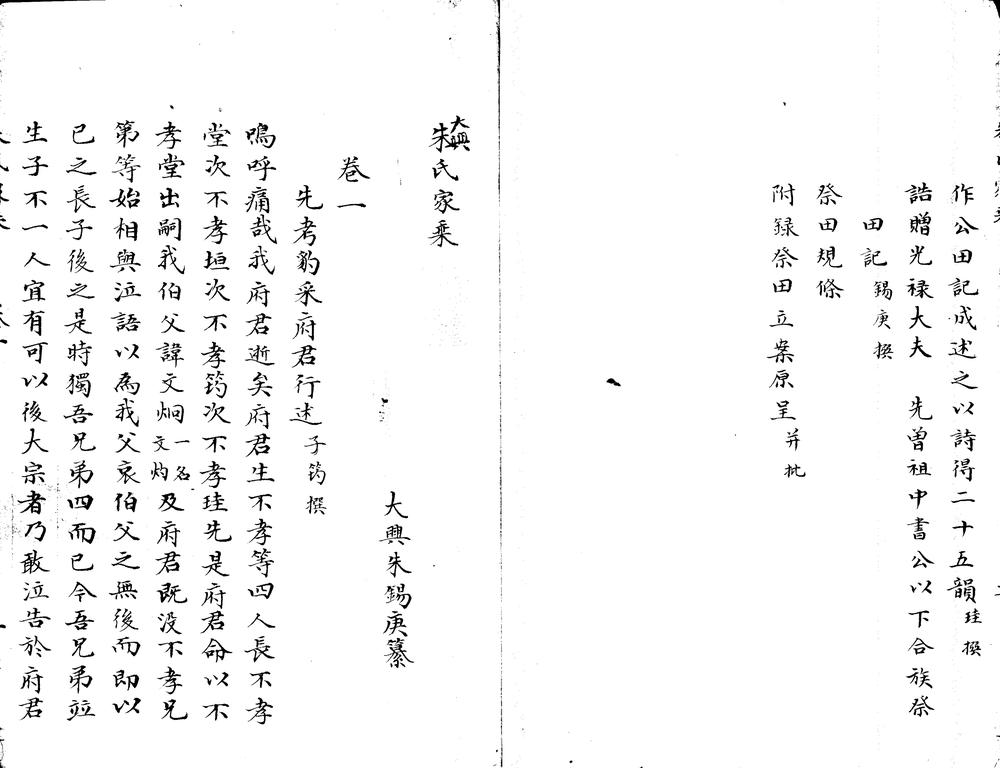 作公田記成述之以詩得二十五韻 珪撰
誥贈光祿大夫 先曾祖中書公以下合族祭
田記 錫庚撰
祭田規條
附録祭田立案原呈 并批
大興朱氏家乘
卷一
大興朱錫庚纂
先考豹采府君行述 子筠撰
嗚呼痛哉我府君逝矣府君生不孝等四人長不孝
堂次不孝垣次不孝筠次不孝珪先是府君命以不
孝堂出嗣我伯父諱文炯一名文灼及府君既没不孝兄
第等始相與泣語以為我父哀伯父之無後而即以
已之長子後之是時獨吾兄弟四而已今吾兄弟竝
生子不一人宜有可以後大宗者乃敢泣告於府君